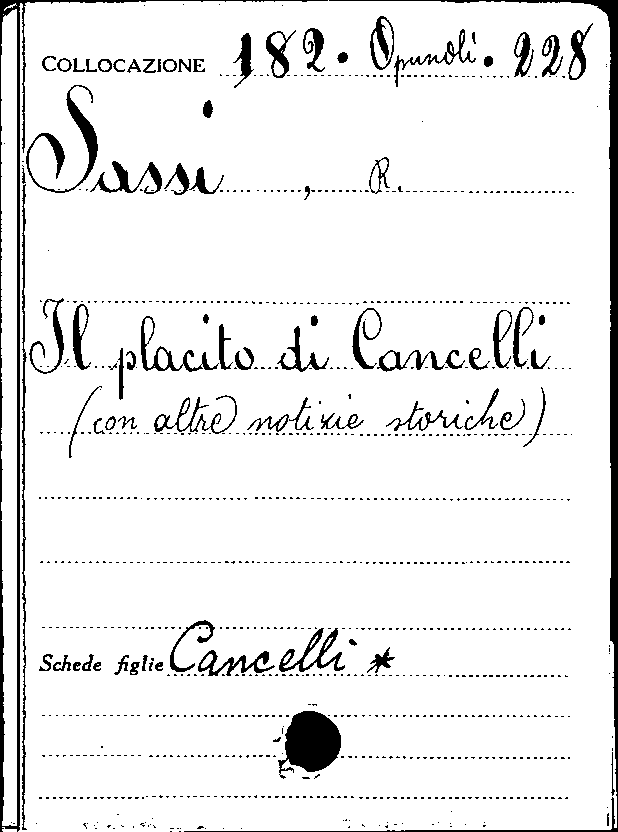 COLLOCAZIONE 182. Opuscoli. 228
Sassi, R.
Il placito di Cancelli
(con altre notizie storiche)
Schede figlie Cancelli *